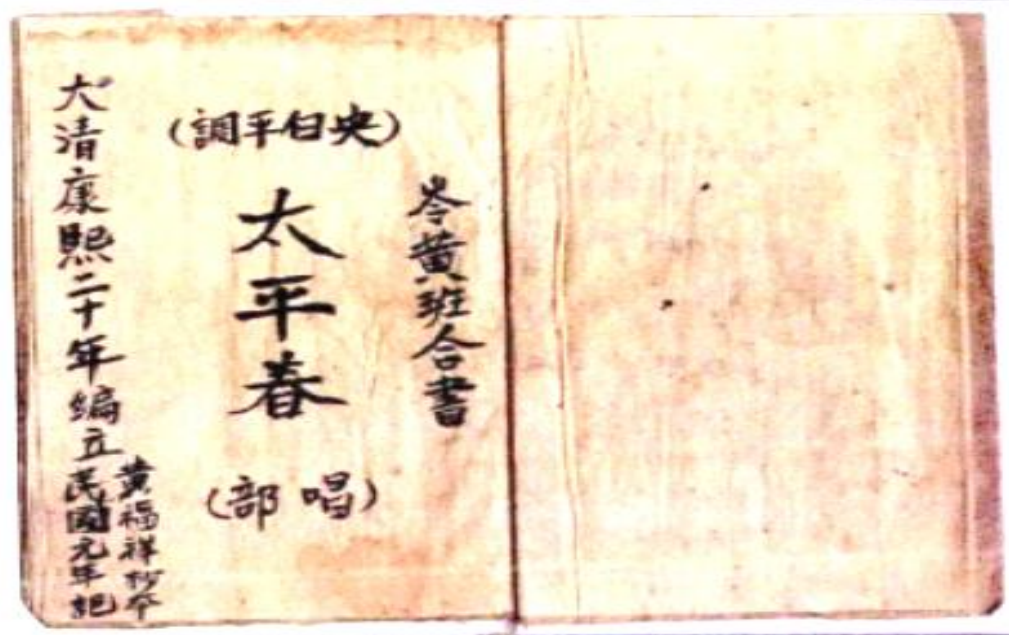 岑黃班合書
(央白平調)
太平春
(唱部)
大清康熙二十年編立
黃福祥抄本
民國元年記